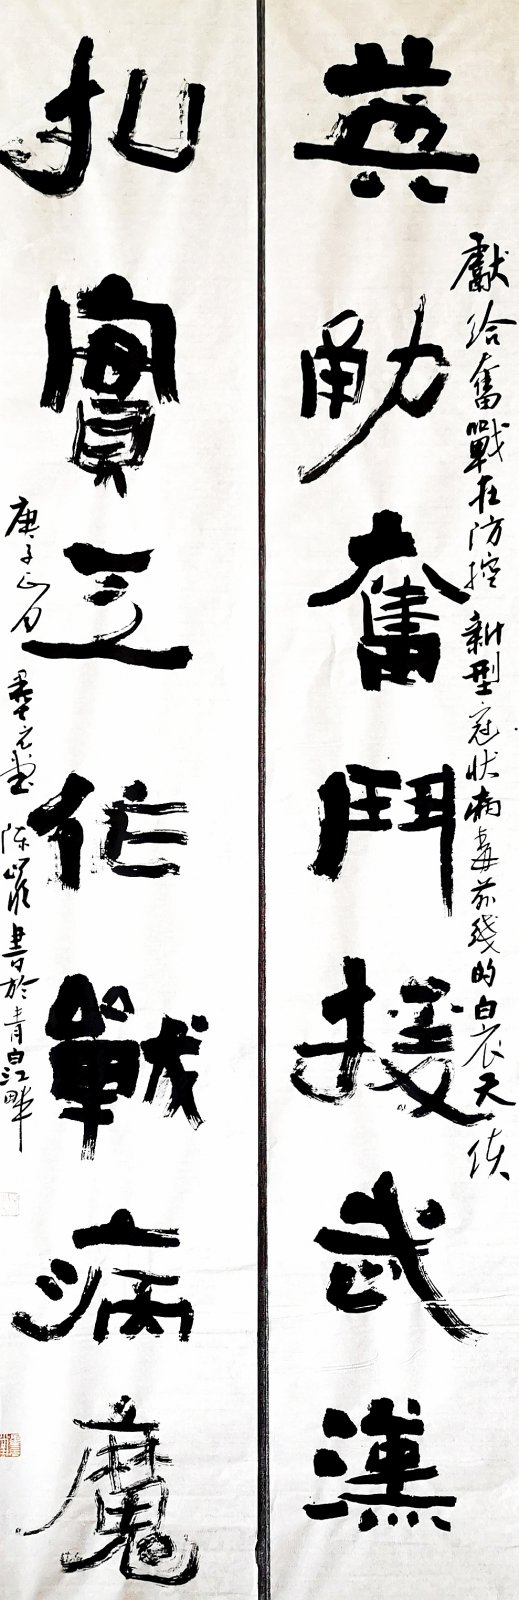 英勇奮鬥援武漢
獻給奮戰在防控新型冠狀病毒前线的白衣天使
扎實工作戰病魔
庚子正月
書於青白江畔